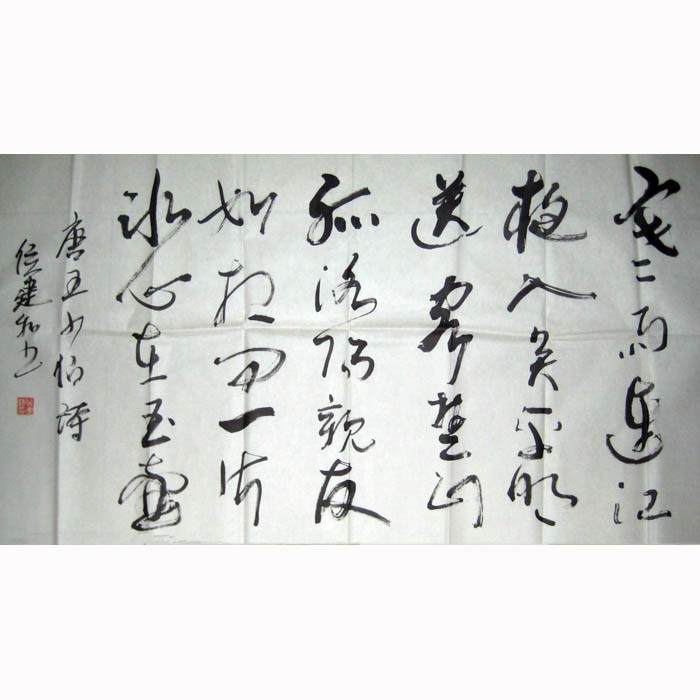 寒雨連江
夜入吳平明
送客楚山
孤洛陽親友
如相問一片
冰心在玉壺
唐王少伯詩
位建和书